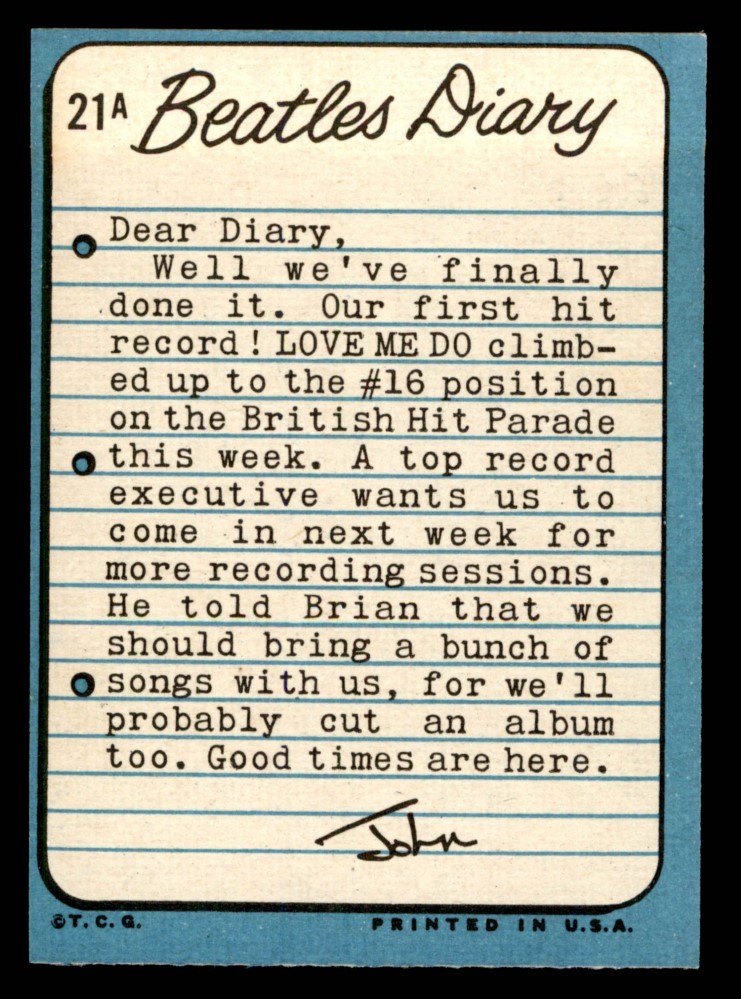 21A Beatles Diary
Dear Diary,
Well we've finally
done it. Our first hit
record! LOVE ME DO climb-
ed up to the #16 position
on the British Hit Parade
this week. A top record
executive wants us to
come in next week for
more recording sessions.
He told Brian that we
should bring a bunch of
songs with us, for we'll
probably cut an album
too. Good times are here.
John
©T.C.G. PRINTED IN U.S.A.